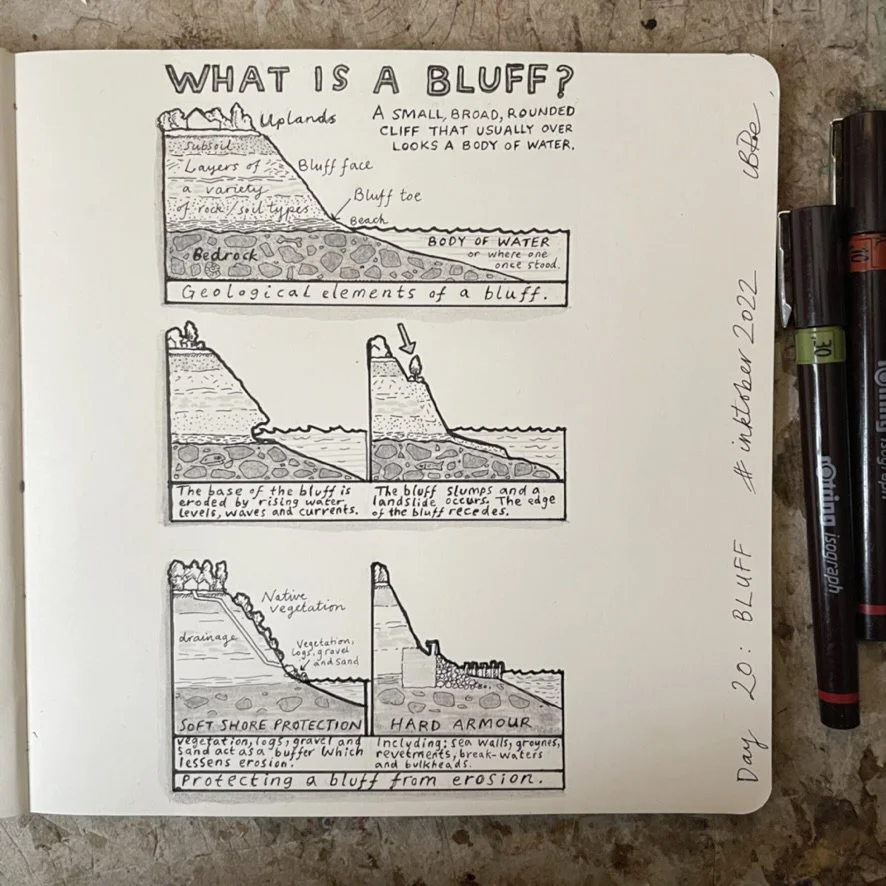 WHAT IS A BLUFF?
A SMALL, BROAD, ROUNDED
CLIFF THAT USUALLY OVER
LOOKS A BODY OF WATER.
Uplands
Subsoil
Layers of
a variety
of rock/soil types
Bluff face
Bluff toe
Beach
BODY OF WATER
or where one
once stood.
Bedrock
Geological elements of a bluff.
The base of the bluff is
eroded by rising water
levels, waves and currents.
The bluff slumps and a
landslide occurs. The edge
of the bluff recedes.
Native
vegetation
drainage
Vegetation,
logs, gravel
and sand
SOFT SHORE PROTECTION
vegetation, logs, gravel and
sand act as a buffer which
lessens erosion.
HARD ARMOUR
Including: sea walls, groynes,
revetments, break-waters
and bulkheads.
Protecting a bluff from erosion.
Day 20: BLUFF # inktober 2022
.30
rotring isograph